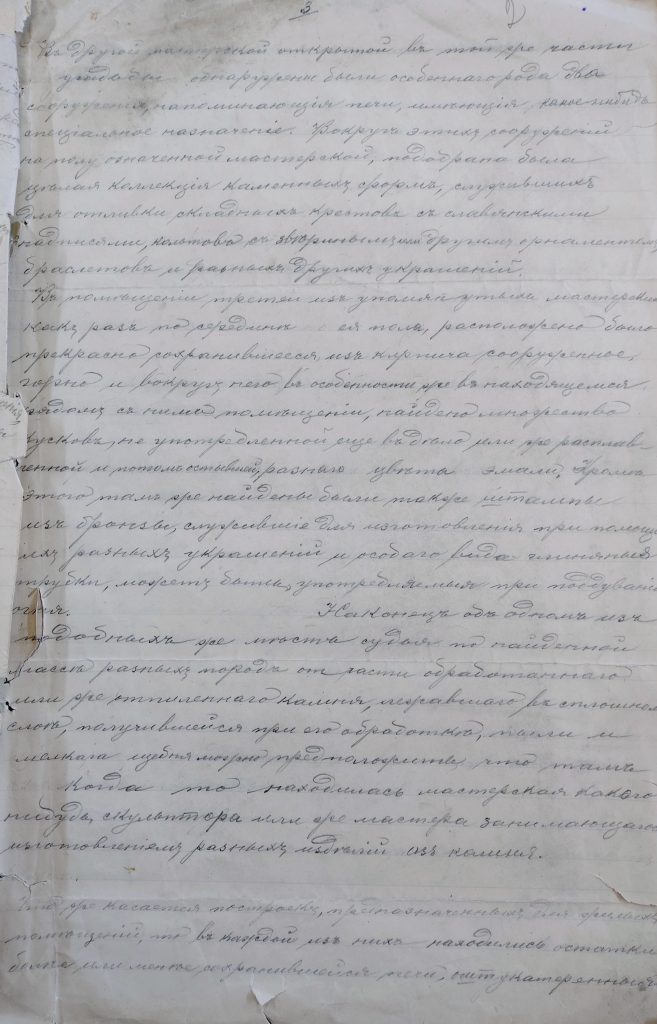 3
Въ другой мастерской открытой въ той же части
усадьбы обнаружены были особеннаго рода два
сооруженія, напоминающія печи, имѣющія какое нибудь
спеціальное назначеніе. Вокругъ этихъ сооруженій
на полу означенной мастерской, подобрана была
цѣлая коллекція каменныхъ формъ, служившихъ
для отливки складныхъ крестовъ съ славянскими
надписями, колтовъ съ звѣринымъ или другимъ орнаментомъ,
браслетовъ и разныхъ другихъ украшеній.
Въ помѣщеніи третей изъ упомянутыхъ мастерскихъ
какъ разъ по серединѣ ея пола, расположено было
прекрасно сохранившееся изъ кирпича сооруженное,
горно и вокругъ него въ особенности же въ находящемся
рядомъ съ нимъ помѣщеніи, найдено множество
кусковъ, не употребленной еще въ дѣло или же расплав-
ленной и потомъ остывшей, разнаго цвѣта эмали, Кромѣ
этого тамъ же найдены были также штампы
изъ бронзы, служившіе для изготовленія при помощи
ихъ разныхъ украшеній и особаго вида глиняныя
трубки, можетъ быть, употребляемыя при поддуваніи
огня. Наконецъ объ одномъ изъ
подобныхъ же мѣстъ судя по найденной
массѣ разныхъ породъ от части обработаннаго
или же отпиленнаго камня, лежавшаго въ сплошномъ
слоѣ, получившейся при его обработкѣ, пыли и
мелкаго щебня можно предположить, что тамъ
когда то находилась мастерская какого
нибудь скульптора или же мастера занимающагося
изготовленіемъ разныхъ издѣлій изъ камня.
Что же касается построекъ, предназначенныхъ для жилыхъ
помѣщеній, то въ каждой изъ нихъ находились остатки
болѣе или менѣе сохранившейся печи, оштукатуренныя